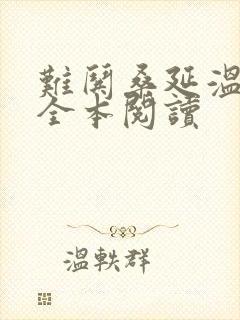 難鬨桑延溫
全本閱讀
溫軼群